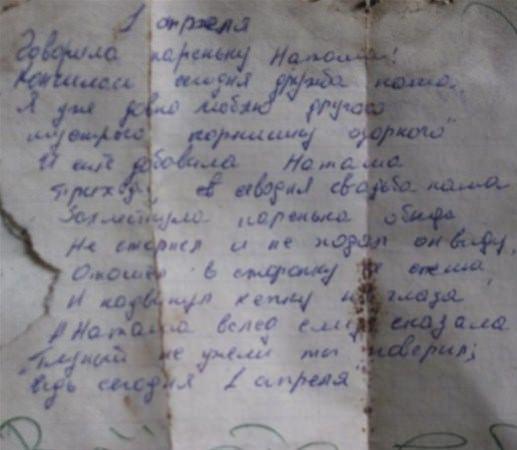 1 апреля
Говорила пареньку Наташа!
Кончилась сегодня дружба наша.
Я уже давно люблю другого
шустрого парнишку озорного"
И ещё добавила Наташа
Приходи, сегодня свадьба наша
Захлестнула паренька обида
Не стерпел и не подал он виду,
Отошёл в сторонку не спеша
И надвинул кепку на глаза
А Наташа вслед ему сказала
"Глупый не ужели ты поверил;
Ведь сегодня 1 апреля"